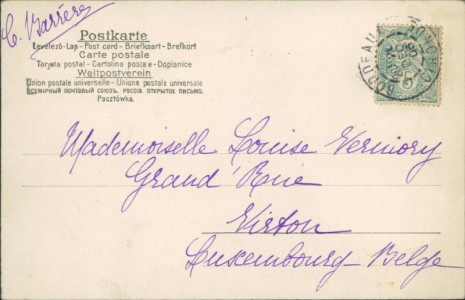 C. Barrère
Postkarte
Levelezö-Lap - Post card - Briefkaart - Brefkort
Carte postale
Tarjeta postal - Cartolina postale - Dopisnice
Weltpostverein
Union postale universelle - Unione postale universale
ВСЕМІРНЫЙ ПОЧТОВЫЙ СОЮЗЪ. РОССІЯ. ОТКРЫТОЕ ПИСЬМО.
Pocztówka.
BORDEAUX
5
Mademoiselle Louise Vermory
Grand' Rue
Virton
Luxembourg - Belge